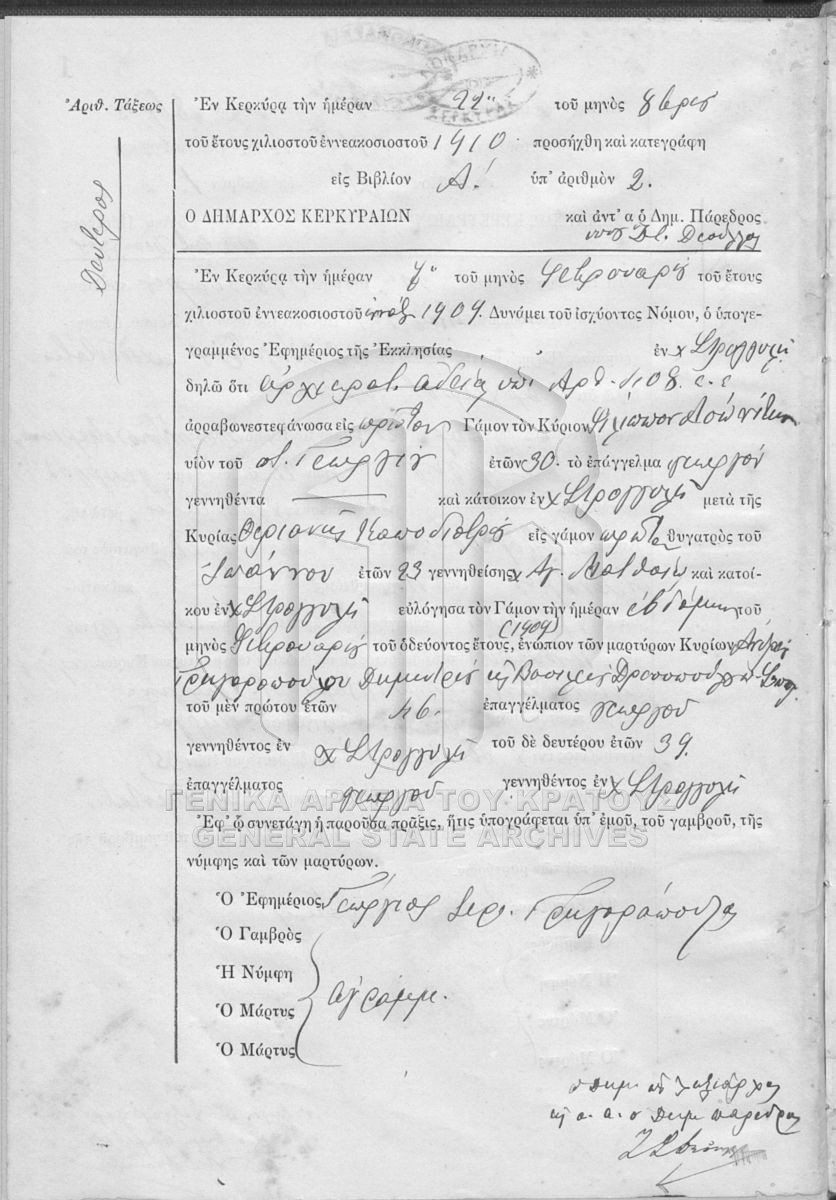 Ἀριθ. Τάξεως
Δεύτερος
Ἐν Κερκύρᾳ τὴν ἡμέραν 22 τοῦ μηνὸς 8βρίου
τοῦ ἔτους χιλιοστοῦ ἐννεακοσιοστοῦ 1910 προσήχθη καὶ κατεγράφη
εἰς Βιβλίον Α! ὑπ' ἀριθμὸν 2.
Ο ΔΗΜΑΡΧΟΣ ΚΕΡΚΥΡΑΙΩΝ καὶ ἀντ' α ὁ Δημ. Πάρεδρος
Ἐν Κερκύρᾳ τὴν ἡμέραν 7 τοῦ μηνὸς Φεβρουαρίου τοῦ ἔτους
χιλιοστοῦ ἐννεακοσιοστοῦ 1909. Δυνάμει τοῦ ἰσχύοντος Νόμου, ὁ ὑπογε-
γραμμένος Ἐφημέριος τῆς Ἐκκλησίας ἐν χ Στρογγυλῇ
δηλῶ ὅτι ἀρχιερατ. ἀδείᾳ ὑπ' Ἀρθ. 108.
ἀρραβωνεστεφάνωσα εἰς πρῶτον Γάμον τὸν Κύριον Φίλιππον
υἱὸν τοῦ Γεωργίου ἐτῶν 30. τὸ ἐπάγγελμα γεωργόν
γεννηθέντα καὶ κάτοικον ἐν χ Στρογγυλῇ μετὰ τῆς
Κυρίας Θεριανῆς Καποδιστρίου εἰς γάμον πρῶτον θυγατρὸς τοῦ
Ἰωάννου ἐτῶν 23 γεννηθείσης χ Ἁγ. Ματθαίῳ καὶ κατοί-
κου ἐν χ Στρογγυλῇ εὐλόγησα τὸν Γάμον τὴν ἡμέραν ἑβδόμην τοῦ
μηνὸς Φεβρουαρίου τοῦ ὁδεύοντος ἔτους, (1909) ἐνώπιον τῶν μαρτύρων Κυρίων
Γρηγοροπούλου Δημητρίου κ Βασιλείου
τοῦ μὲν πρώτου ἐτῶν 46. ἐπαγγέλματος γεωργοῦ
γεννηθέντος ἐν χ Στρογγυλῇ τοῦ δὲ δευτέρου ἐτῶν 39.
ἐπαγγέλματος γεωργοῦ γεννηθέντος ἐν χ Στρογγυλῇ
ΓΕΝΙΚΑ ΑΡΧΕΙΑ ΤΟΥ ΚΡΑΤΟΥΣ
Ἐφ' ᾧ συνετάγη ἡ παροῦσα πρᾶξις, ἥτις ὑπογράφεται ὑπ' ἐμοῦ, τοῦ γαμβροῦ, τῆς
GENERAL STATE ARCHIVES
νύμφης καὶ τῶν μαρτύρων.
Ὁ Ἐφημέριος Γεώργιος Ἱερ. Γρηγορόπουλος
Ὁ Γαμβρὸς
Ἡ Νύμφη
ἀγράμμ.
Ὁ Μάρτυς
Ὁ Μάρτυς
κ α. α. ο Δημ πάρεδρος